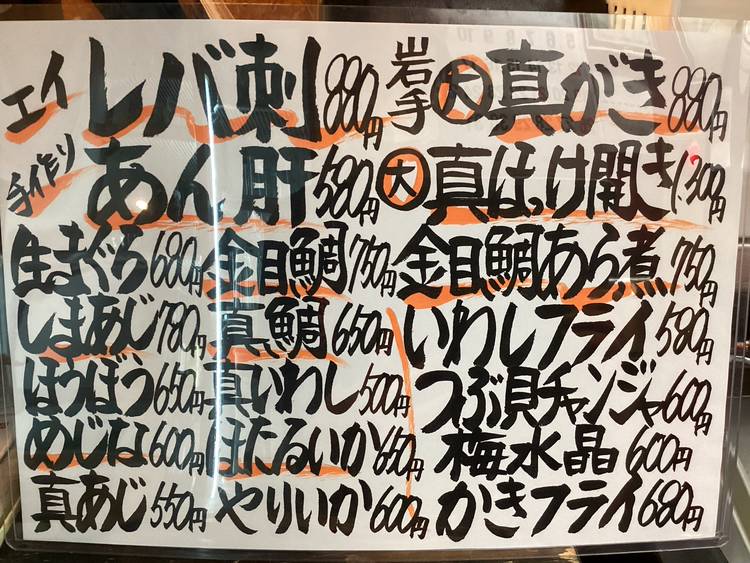 エイ レバ刺 880円
岩手 大 真がき 880円
手作り あん肝 580円
大 真ほっけ開き 1,300円
生まぐろ 680円
金目鯛 750円
金目鯛あら煮 750円
しまあじ 780円
真鯛 650円
いわしフライ 580円
ほうぼう 650円
真いわし 500円
つぶ貝チャンジャ 600円
めじな 600円
ほたるいか 650円
梅水晶 600円
真あじ 550円
やりいか 600円
かきフライ 680円